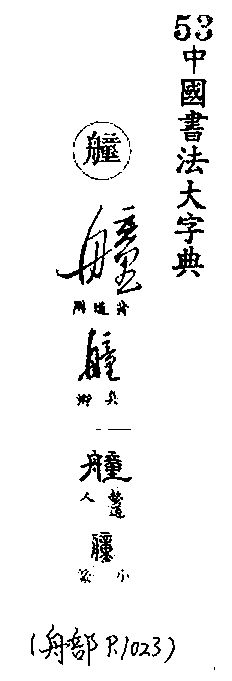 53
中國書法大字典
艟
艟
艟
艟
艟
小篆
(舟部 P.1023)